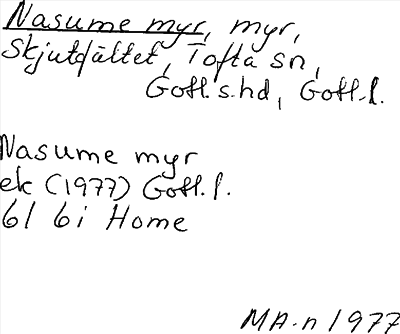 Nasume myr, myr,
Skjutfältet, Tofta sn,
Gotl. s. hd, Gotl. l.
Nasume myr
ek (1977) Gotl. l.
6I 6i Home
MA-n 1977